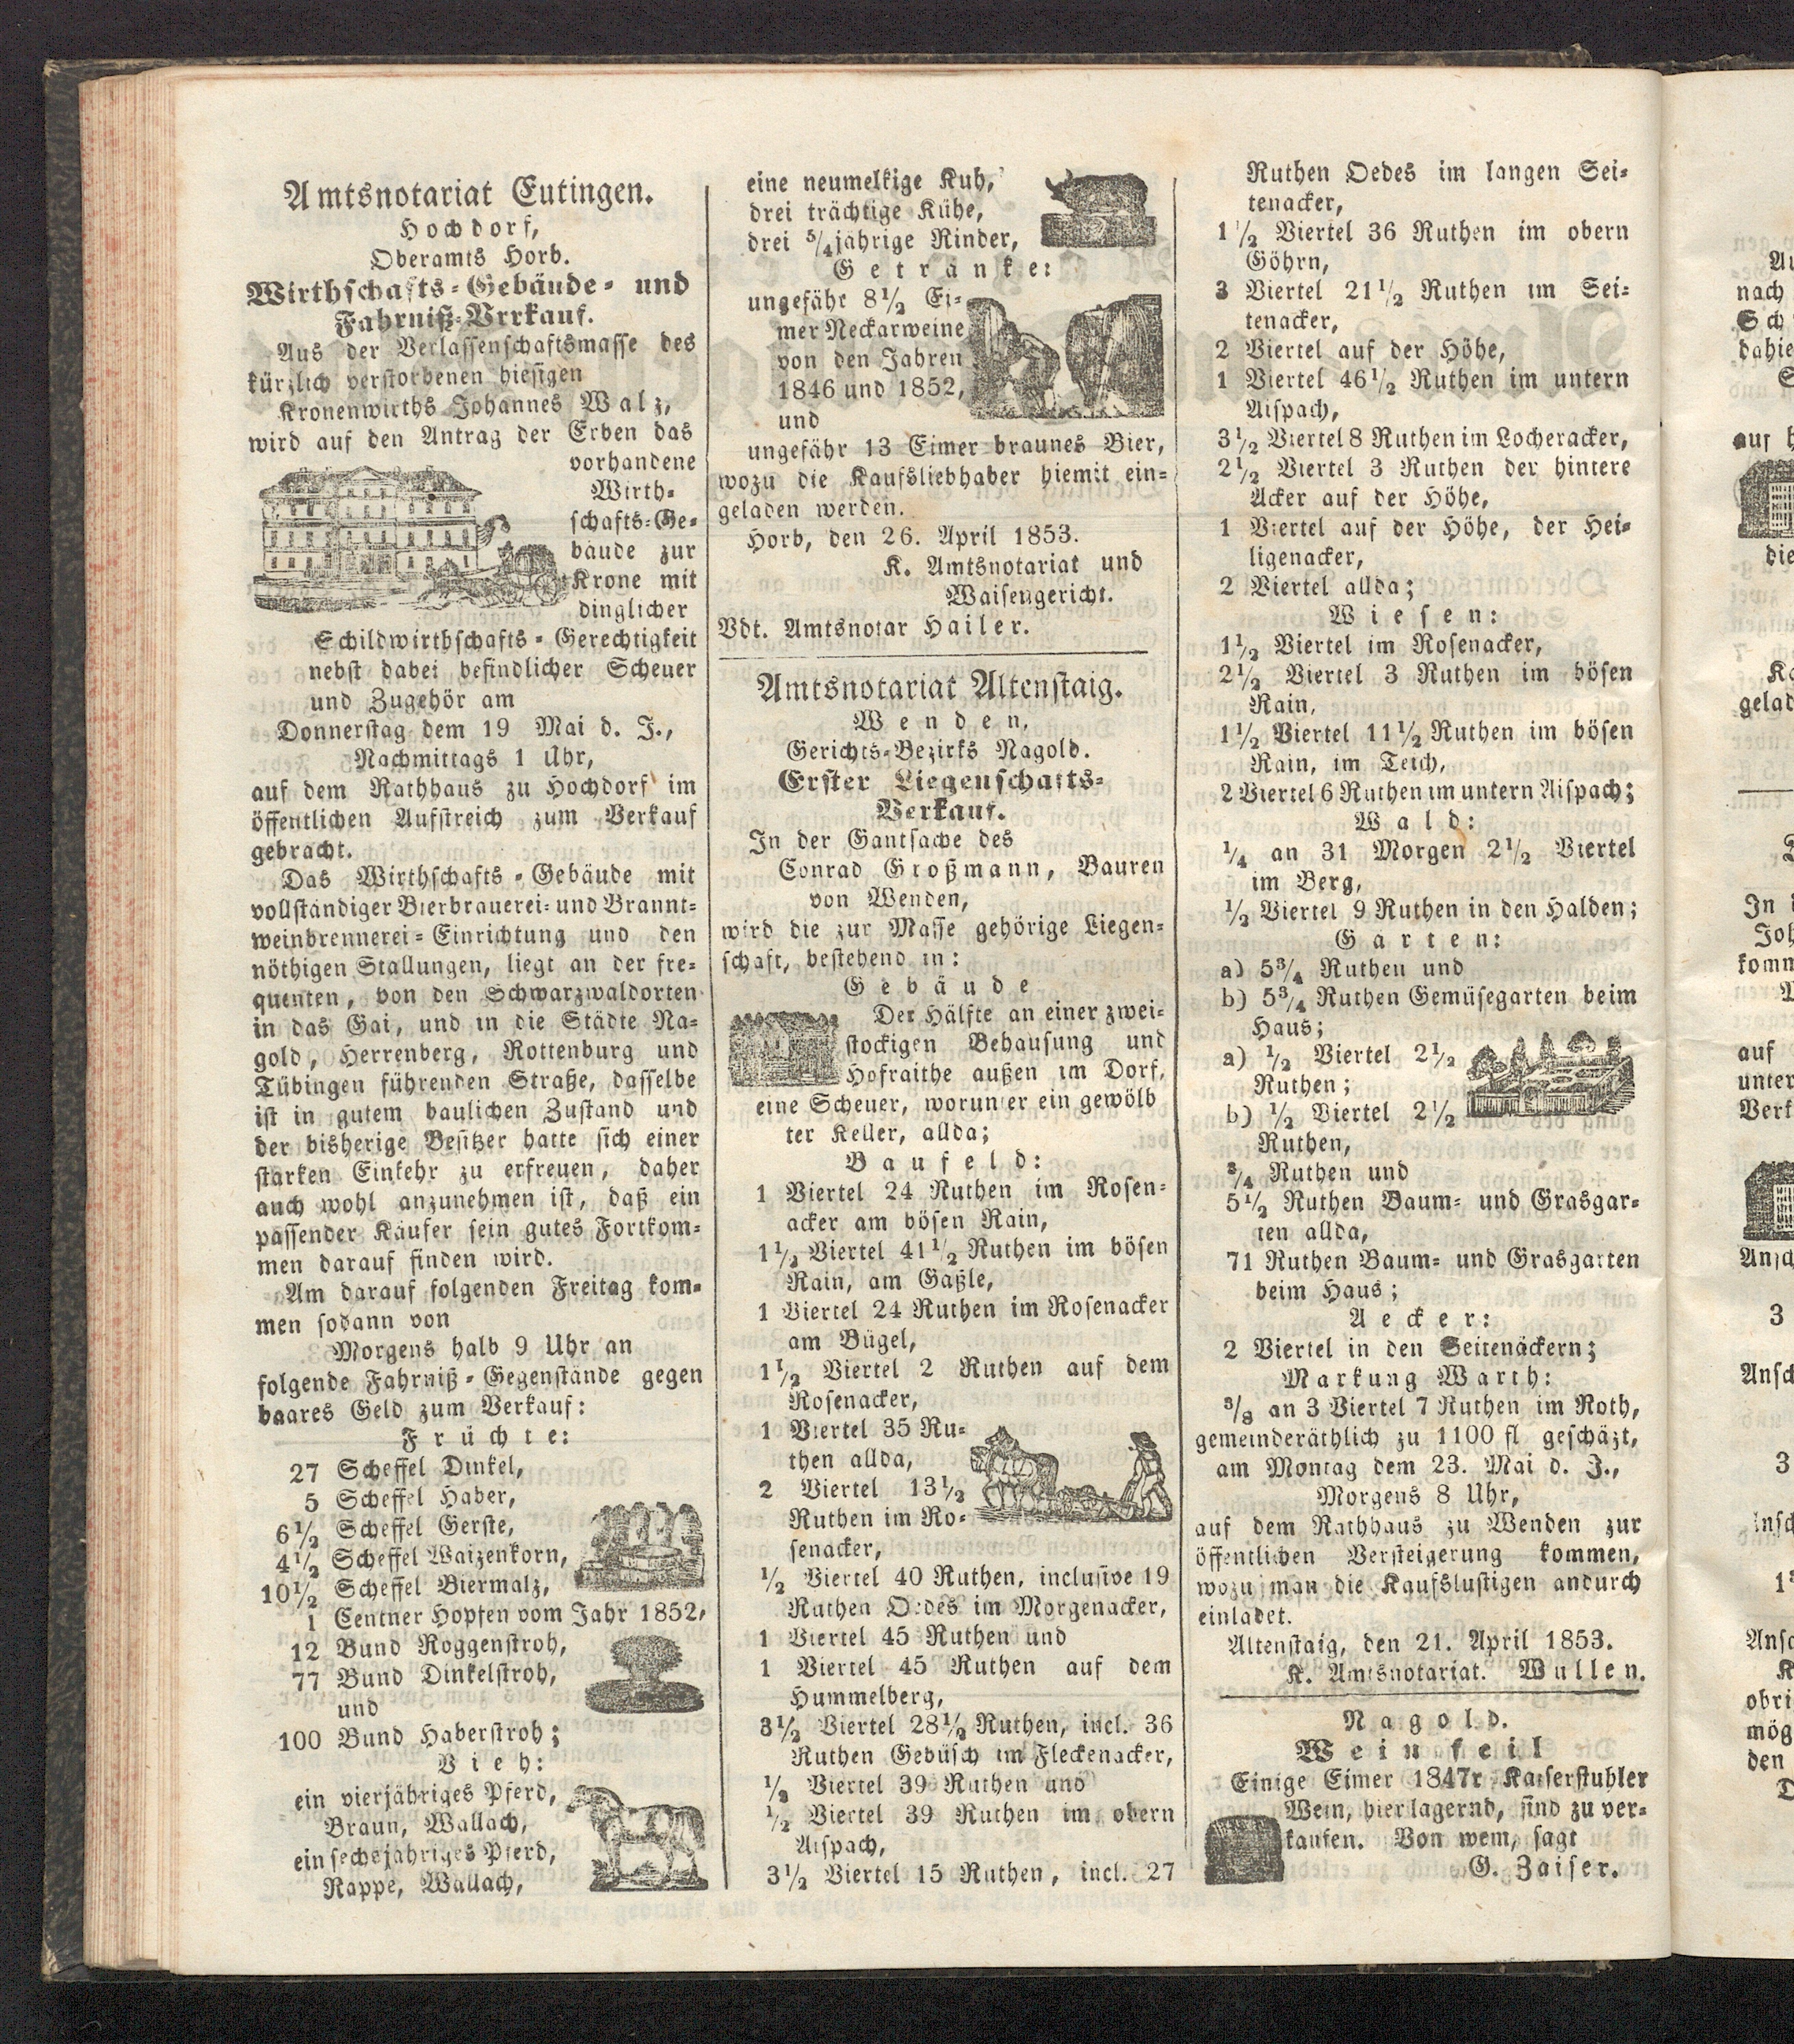 Amtsnotariat Eutingen.
Hochdorf,
Oberamts Horb.
Wirthschafts-Gebäude- und
Fahrniß-Vrrkauf.
Aus der Verlassenschaftsmasse des
kürzlich verstorbenen hiesigen
Kronenwirths Johannes Walz,
wird auf den Antrag der Erben das
vorhandene
Wirth-
schafts-Ge-
bäude zur
Krone mit
dinglicher
Schildwirthschafts-Gerechtigkeit
nebst dabei befindlicher Scheuer
und Zugehör am
Donnerstag dem 19 Mai d. J.,
Nachmittags 1 Uhr,
auf dem Rathhaus zu Hochdorf im
öffentlichen Aufstreich zum Verkauf
gebracht.
Das Wirthschafts-Gebäude mit
vollständiger Bierbrauerei- und Brannt-
weinbrennerei-Einrichtung und den
nöthigen Stallungen, liegt an der fre-
quenten, von den Schwarzwaldorten
in das Gäi, und in die Städte Na-
gold, Herrenberg, Rottenburg und
Tübingen führenden Straße, dasselbe
ist in gutem baulichen Zustand und
der bisherige Besitzer hatte sich einer
starken Einkehr zu erfreuen, daher
auch wohl anzunehmen ist, daß ein
passender Käufer sein gutes Fortkom-
men darauf finden wird.
Am darauf folgenden Freitag kom-
men sodann von
Morgens halb 9 Uhr an
folgende Fahrniß-Gegenstände gegen
baares Geld zum Verkauf:
Früchte:
27 Scheffel Dinkel,
5 Scheffel Haber,
6½ Scheffel Gerste,
4½ Scheffel Waizenkorn,
10½ Scheffel Biermalz,
1 Centner Hopfen vom Jahr 1852,
12 Bund Roggenstroh,
77 Bund Dinkelstroh,
und
100 Bund Haberstroh;
Vieh:
ein vierjähriges Pferd,
Braun, Wallach,
ein sechsjähriges Pferd,
Rappe, Wallach,
eine neumelkige Kuh,
drei trächtige Kühe,
drei 5/4jährige Rinder,
Getränke:
ungefähr 8½ Ei-
mer Neckarweine
von den Jahren
1846 und 1852,
und
ungefähr 13 Eimer braunes Bier,
wozu die Kaufsliebhaber hiemit ein-
geladen werden.
Horb, den 26. April 1853.
K. Amtsnotariat und
Waisengericht.
Vdt. Amtsnotar Hailer.
Amtsnotariat Altenstaig.
Wenden,
Gerichts-Bezirks Nagold.
Erster Liegenschafts-
Verkauf.
In der Gantsache des
Conrad Großmann, Bauren
von Wenden,
wird die zur Masse gehörige Liegen-
schaft, bestehend in:
Gebäude
Der Hälfte an einer zwei-
stockigen Behausung und
Hofraithe außen im Dorf,
eine Scheuer, worunter ein gewölb
ter Keller, allda;
Baufeld:
1 Viertel 24 Ruthen im Rosen-
acker am bösen Rain,
1½ Viertel 41½ Ruthen im bösen
Rain, am Gäßle,
1 Viertel 24 Ruthen im Rosenacker
am Bügel,
1½ Viertel 2 Ruthen auf dem
Rosenacker,
1 Viertel 35 Ru-
then allda,
2 Viertel 13½
Ruthen im Ro-
senacker,
½ Viertel 40 Ruthen, inclusive 19
Ruthen Oedes im Morgenacker,
1 Viertel 45 Ruthen und
1 Viertel 45 Ruthen auf dem
Hummelberg,
3½ Viertel 28½ Ruthen, incl. 36
Ruthen Gebüsch im Fleckenacker,
½ Viertel 39 Ruthen und
½ Viertel 39 Ruthen im obern
Aispach,
3½ Viertel 15 Ruthen, incl. 27
Ruthen Oedes im langen Sei-
tenacker,
1½ Viertel 36 Ruthen im obern
Göhrn,
3 Viertel 21½ Ruthen im Sei-
tenacker,
2 Viertel auf der Höhe,
1 Viertel 46½ Ruthen im untern
Aispach,
3½ Viertel 8 Ruthen im Locheracker,
2½ Viertel 3 Ruthen der hintere
Acker auf der Höhe,
1 Viertel auf der Höhe, der Hei-
ligenacker,
2 Viertel allda;
Wiesen:
1½ Viertel im Rosenacker,
2½ Viertel 3 Ruthen im bösen
Rain,
1½ Viertel 11½ Ruthen im bösen
Rain, im Teich,
2 Viertel 6 Ruthen im untern Aispach;
Wald:
¼ an 31 Morgen 2½ Viertel
im Berg,
½ Viertel 9 Ruthen in den Halden;
Gärten:
a) 5¾ Ruthen und
b) 5¾ Ruthen Gemüsegarten beim
Haus;
a) ½ Viertel 2½
Ruthen;
b) ½ Viertel 2½
Ruthen,
¾ Ruthen und
5½ Ruthen Baum- und Grasgar-
ten allda,
71 Ruthen Baum- und Grasgarten
beim Haus;
Aecker:
2 Viertel in den Seitenäckern;
Markung Warth:
3/8 an 3 Viertel 7 Ruthen im Roth,
gemeinderäthlich zu 1100 fl geschäzt,
am Montag dem 23. Mai d. J.,
Morgens 8 Uhr,
auf dem Rathhaus zu Wenden zur
öffentlichen Versteigerung kommen,
wozu man die Kaufslustigen andurch
einladet.
Altenstaig, den 21. April 1853.
K. Amtsnotariat. Wullen.
Nagold.
Wein feil
Einige Eimer 1847r Kaiserstuhler
Wein, hier lagernd, sind zu ver-
kaufen. Von wem, sagt
G. Zaiser.
nach
dahie
auf
die
gelad
In
Joh
komm
auf
unter
Verk
3
Ansch
3
obri
mög
den